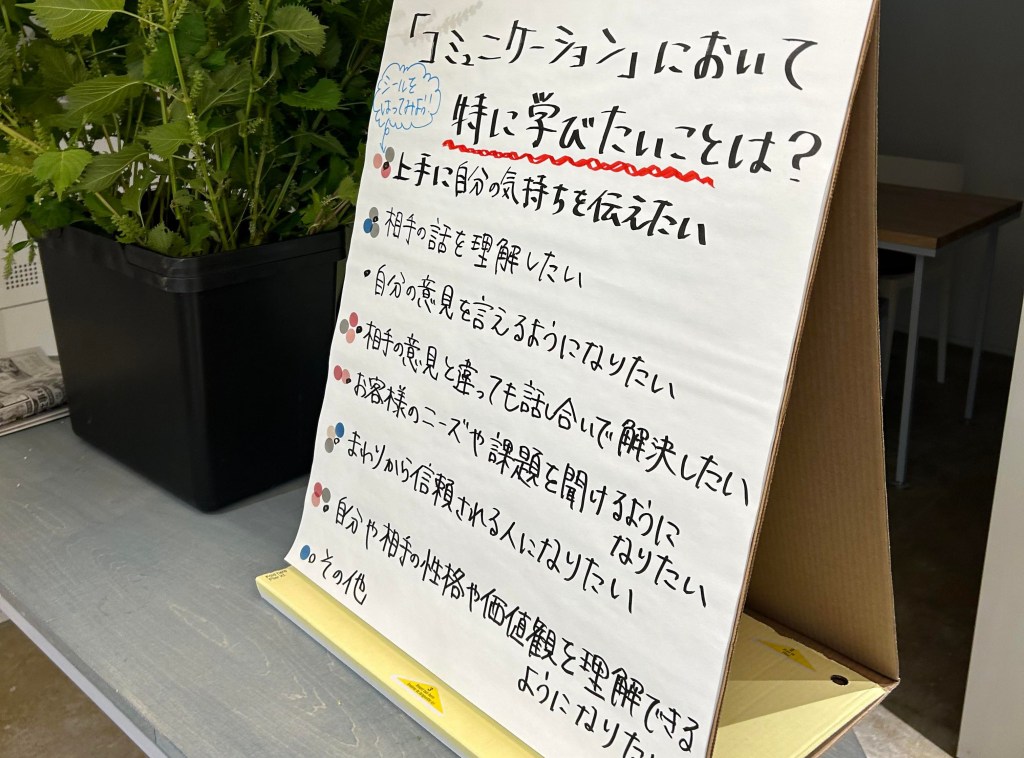 「コミュニケーション」において
シールを
はってみよう!
特に学びたいことは?
・上手に自分の気持ちを伝えたい
・相手の話を理解したい
・自分の意見を言えるようになりたい
・相手の意見と違っても話し合いで解決したい
・お客様のニーズや課題を聞けるように
なりたい
・まわりから信頼される人になりたい
・自分や相手の性格や価値観を理解できる
ようになりた
・その他
3